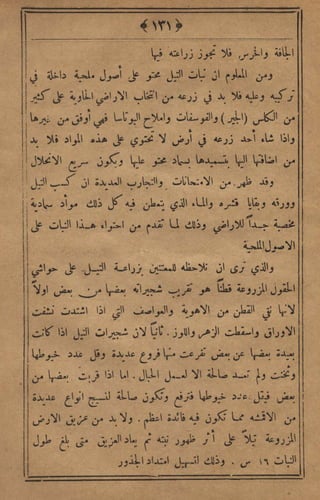 ﴿ ١٣١ ﴾
الجافة والخرس فلا تجوز زراعته فيها
ومن المعلوم ان نبات التيل محتو على أصول ملحية داخلة في
تركيبه وعليه فلا بد في زرعه من انتخاب الاراضي الحاوية على كثير
من الكلس (الجير) والفوسفات واملاح البوتاسا فهي أوفق من غيرها
واذا شاء أحد زرعه في أرض لا تحتوي على هذه المواد فلا بد
من اضافتها اليها بتسميدها بسماد محتو عليها وتكون سريع الانحلال
وقد ظهر من الامتحانات والتجارب العديدة ان كسب التيل
وورقه وبقايا قشره والماء الذي يتعطن فيه كل ذلك مواد سمادية
مخصبة جداً للاراضي وذلك لما تقدم من احتواء هذا النبات على
الاصول الملحية
والذي نرى ان نلاحظه للمعتنين بزراعة التيل على حوافي
الحقول المزروعة قطناً هو تقريب شجيراته بعضها من بعض اولاً
لانها تقي القطن من الاهوية والعواصف التي اذا اشتدت نشفت
الاوراق واسقطت الزهر واللوز . ثانياً لان شجيرات التيل اذا كانت
بعيدة بعضها عن بعض تفرعت منها فروع عديدة وقل عدد خيوطها
وثخنت ولم تعد صالحة الا لعمل الحبال . اما اذا قربت بعضها من
بعض فيقل عدد خيوطها فترفع وتكون صالحة لنسيج انواع عديدة
من الاقمشه مما تكون فيه فائدة اعظم . ولا بد من عزيق الارض
المزروعة تيلاً على أثر ظهور نبته ثم يعاد العزيق متى بلغ طول
النبات ١٦ س . وذلك لتسهيل امتداد الجذور